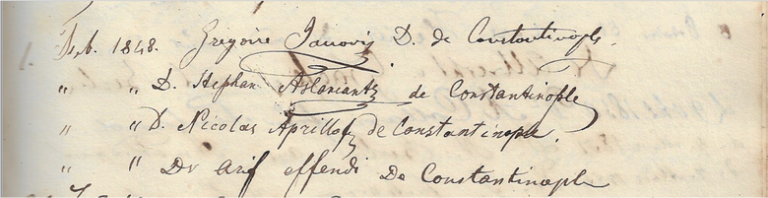 Feb. 1848. Gregoire Janovis D. de Constantinople.
" " D. Stephan Aslaniantz de Constantinople
" " D. Nicolas Aprillof de Constantinople.
" " Dr Arif effendi De Constantinople